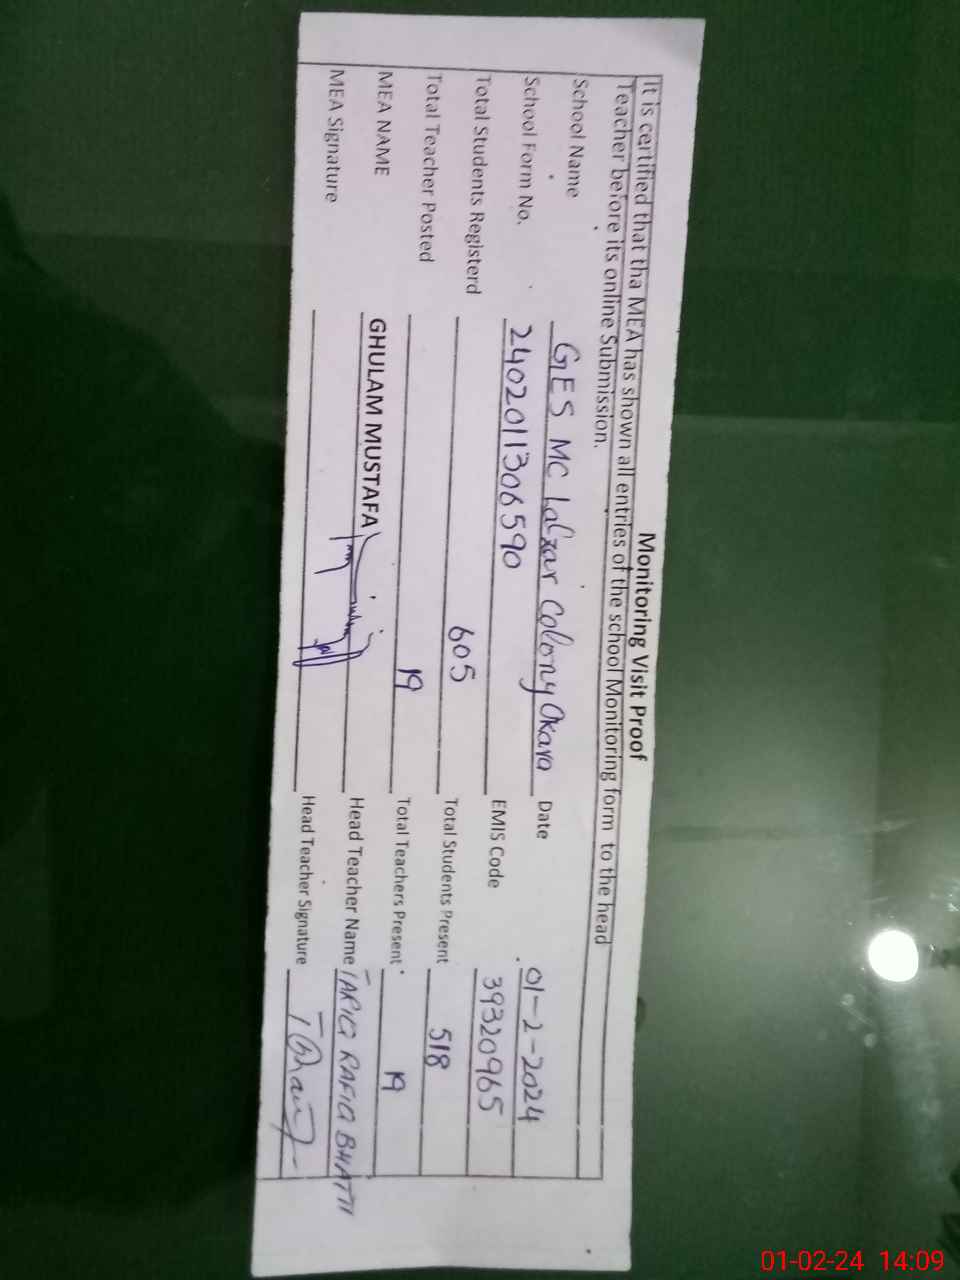 Monitoring Visit Proof
It is certified that tha MEA has shown all entries of the school Monitoring form to the head
Teacher before its online Submission.
School Name GES MC Lalzar Colony Okara Date 01-2-2024
School Form No. 2402011306590 EMIS Code 39320965
Total Students Registerd 605 Total Students Present 518
Total Teacher Posted 19 Total Teachers Present 19
MEA NAME GHULAM MUSTAFA Head Teacher Name TARIQ RAFIQ BHATTI
MEA Signature Head Teacher Signature
01-02-24 14:09